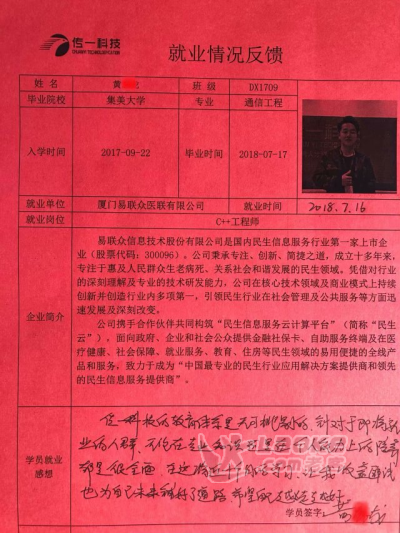 传一科技
就业情况反馈
姓 名 黄 班 级 DX1709
毕业院校 集美大学 专业 通信工程
入学时间 2017-09-22 毕业时间 2018-07-17
就业单位 厦门易联众医联有限公司 就业时间 2018.7.16
就业岗位 C++工程师
企业简介
易联众信息技术股份有限公司是国内民生信息服务行业第一家上市企
业（股票代码：300096）。公司秉承专注、创新、简捷之道，成立十多年来，
专注于惠及人民群众生老病死、关系社会和谐发展的民生领域，凭借对行业
的深刻理解及专业的技术研发能力，公司在核心技术领域及商业模式上持续
创新并创造行业内多项第一，引领民生行业在社会管理及公共服务等方面迅
速发展及深刻改变，
公司携手合作伙伴共同构筑“民生信息服务云计算平台”（简称“民生
云”），面向政府、企业和社会公众提供金融社保卡、自助服务终端及在医
疗健康、社会保障、就业服务、教育、住房等民生领域的易用便捷的全线产
品和服务，致力于成为“中国最专业的民生行业应用解决方案提供商和领先
的民生信息服务提供商”。
学员就业
感想
传一科技的教育体系是无可挑剔的，针对于即将就
业的人群，不论在
都是很全面，在这将近十
也为自己未来铺好了道路，希望
学员签字：黄